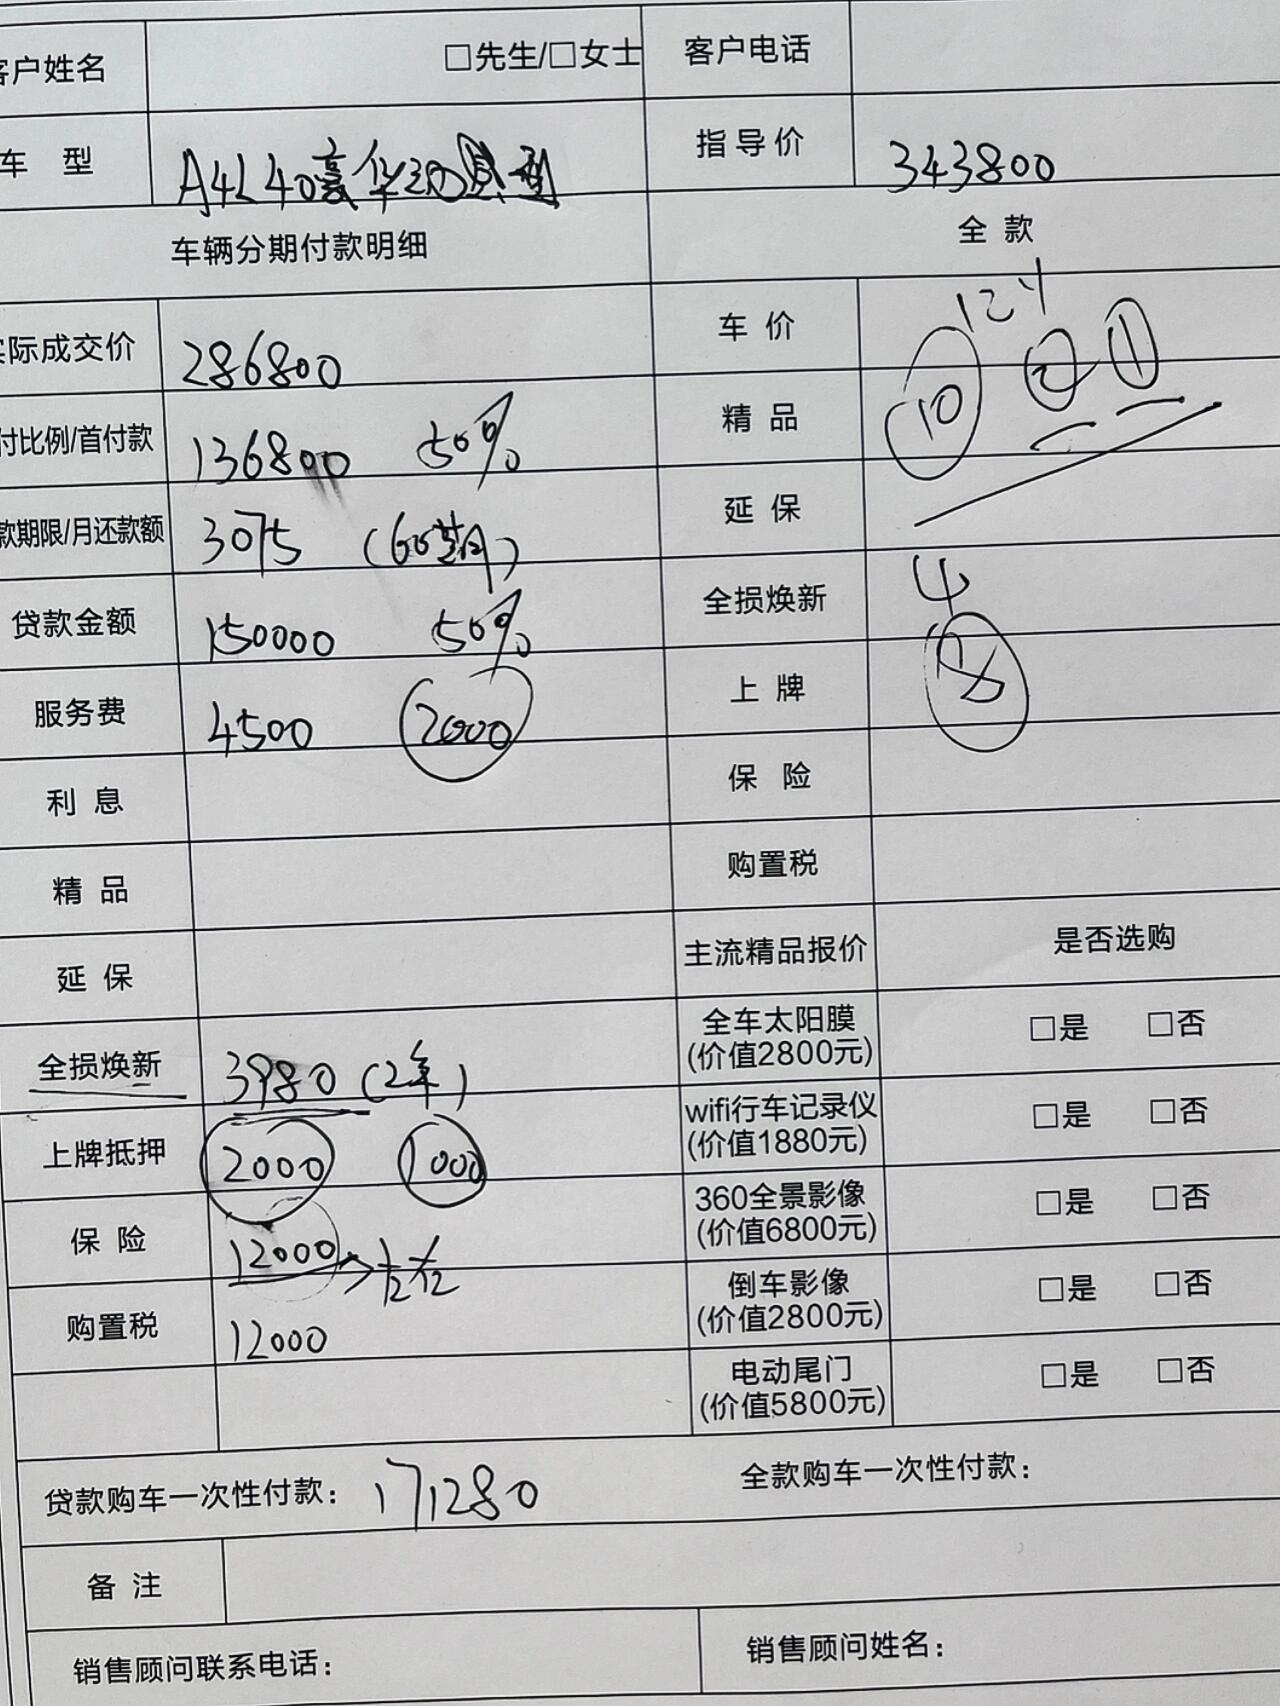 客户姓名 □先生/□女士 客户电话
车 型 A4L40豪华动感型 指导价 343800
车辆分期付款明细 全 款
实际成交价 286800 车 价 12个
付比例/首付款 136800 50% 精 品 10 2 1
款期限/月还款额 3075 (60期) 延 保
贷款金额 150000 50% 全损焕新 4
服务费 4500 2000 上 牌 8
利 息 保 险
精 品 购置税
延 保 主流精品报价 是否选购
全损焕新 3980 (2年) 全车太阳膜
(价值2800元) □是 □否
上牌抵押 2000 1000 wifi行车记录仪
(价值1880元) □是 □否
保 险 12000 360全景影像
(价值6800元) □是 □否
购置税 12000 倒车影像
(价值2800元) □是 □否
电动尾门
(价值5800元) □是 □否
贷款购车一次性付款： 171280 全款购车一次性付款：
备 注
销售顾问联系电话： 销售顾问姓名：